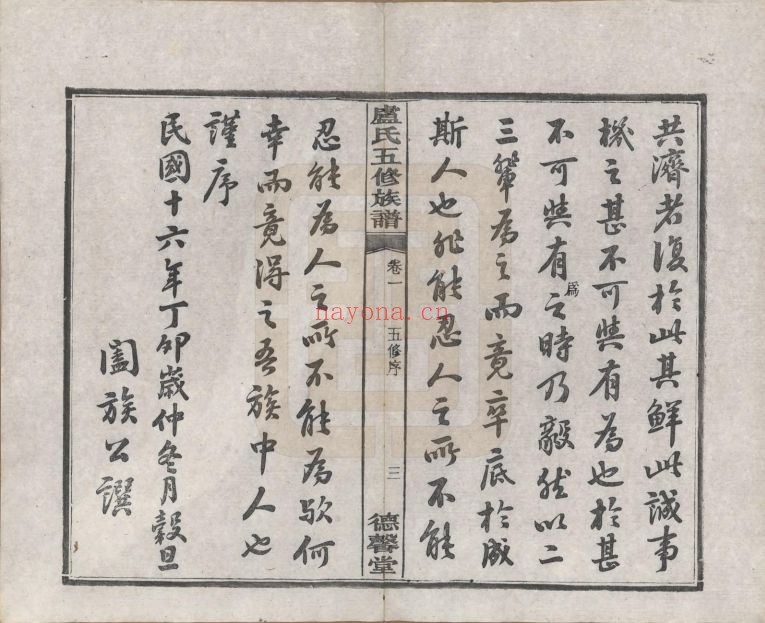 共濟者復於此其鮮此誠事
機之甚不可與有為也於甚
不可與有為之時乃毅然以二
三輩為之而竟卒底於成
斯人也非能忍人之所不能
盧氏五修族譜
卷一
五修序
三
德馨堂
忍能為人之所不能為歟何
幸而竟得之吾族中人也
謹序
民國十六年丁卯歲仲冬月穀旦
闔族公譔
nayona.cn